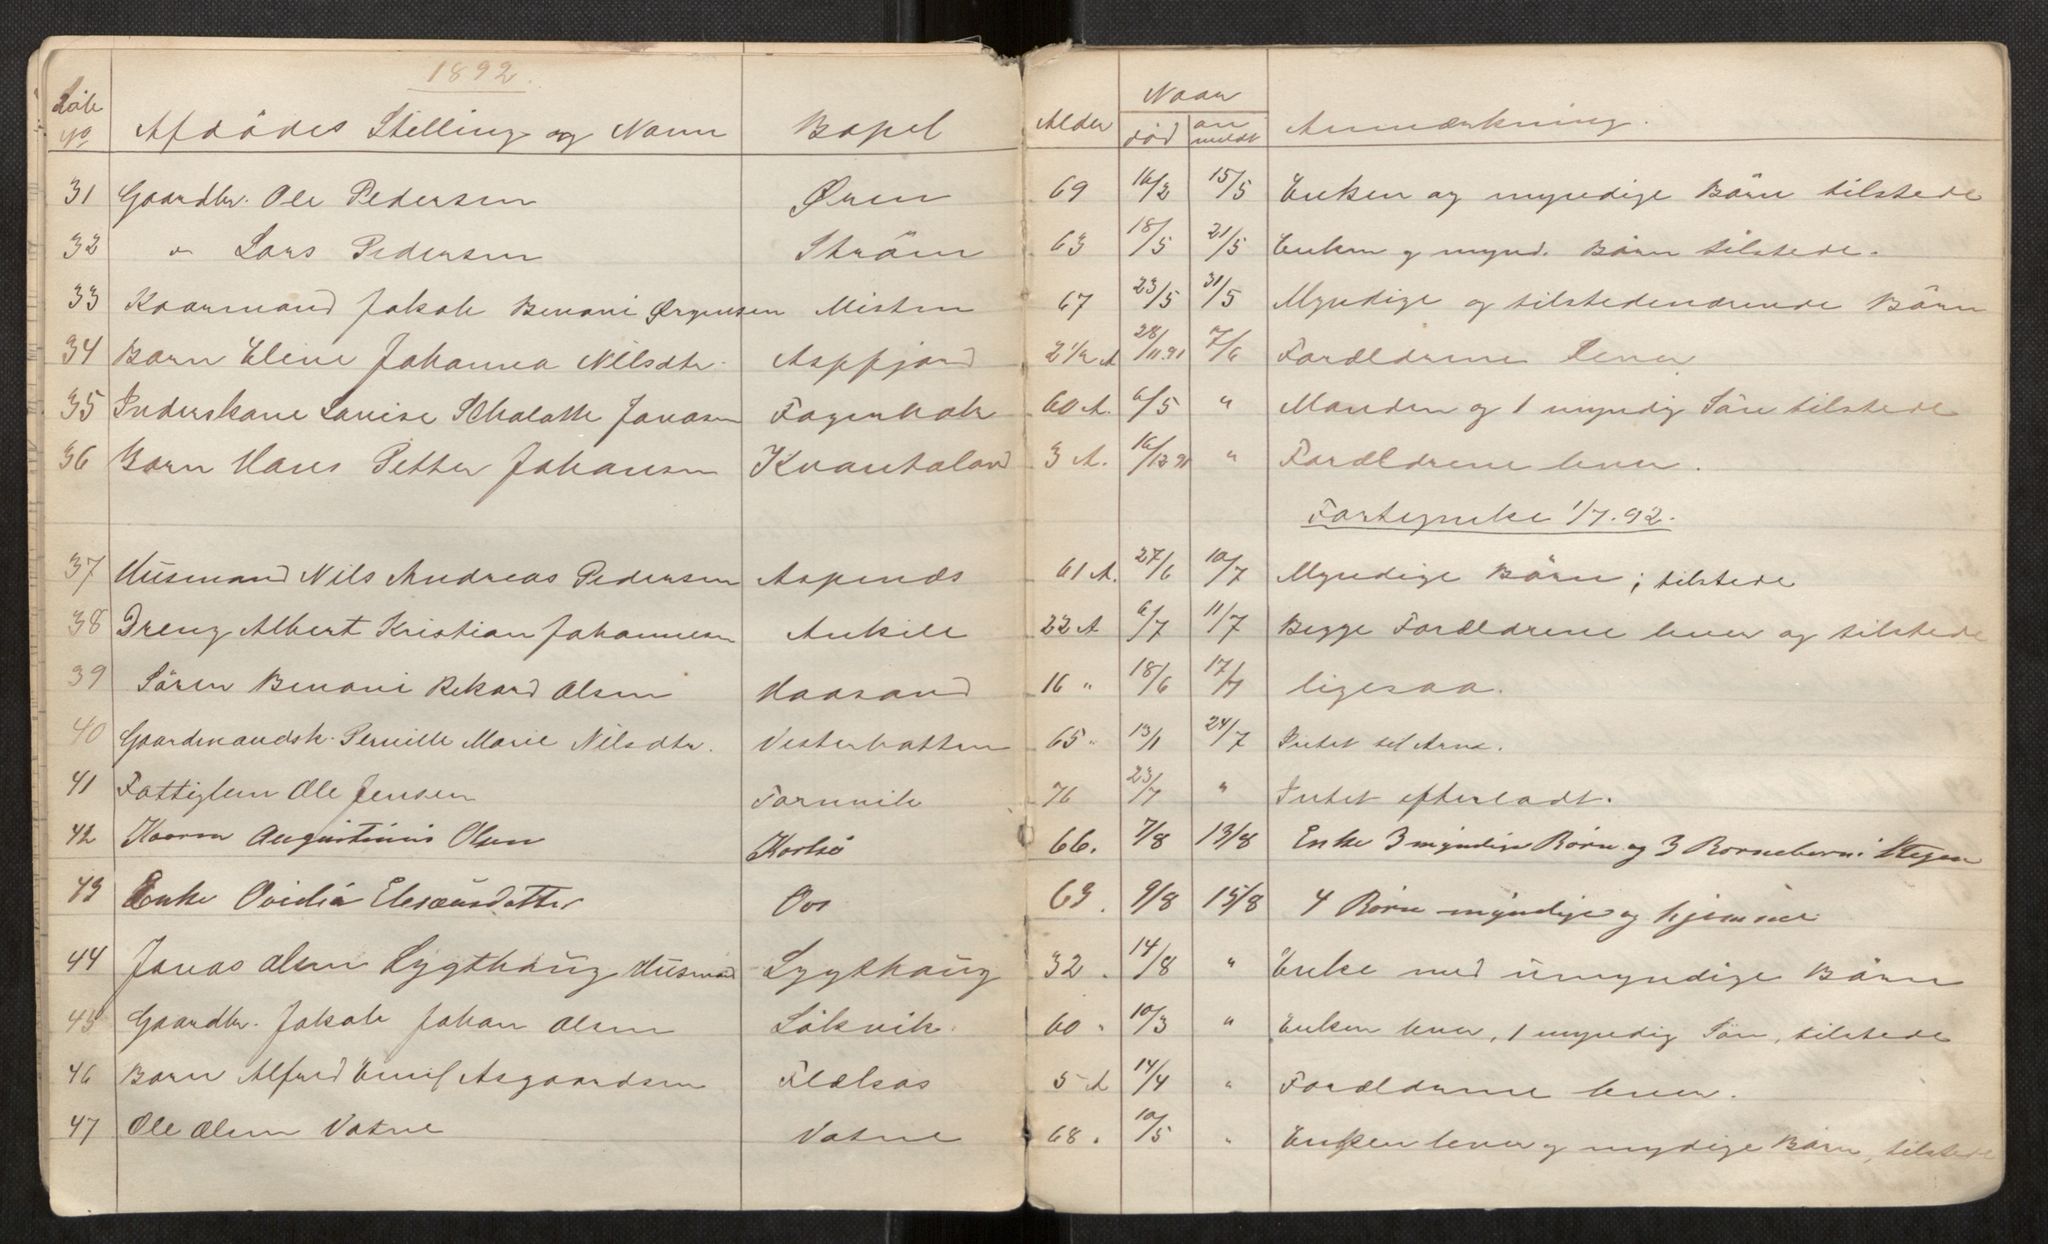 1892.
Löbe No Afdödes Stilling og Navn Bopel Alder Naar död an meldt Anmærkning.
31 Gaardbr. Ole Pedersen Øren 69 16/2 15/5 Enken og myndige Börn tilstede
32 " Lars Pedersen Ström 63 18/5 21/5 Enken og mynd. Börn tilstede.
33 Kaarmand Jakob Benoni Ørgensen Misten 67 23/5 31/5 Myndige og tilstedeværende Börn
34 Barn Eline Johanna Nilsdtr. Aspfjord 2 1/2 A 28/11.91 7/6 Forældrene lever
35 Inderskone Lovise Jonasen Fagerbak 60 A. 6/5 " Manden og 1 myndig Sön tilstede
36 Barn Hans Petter Johansen Kvantoland 3 A. 16/12 91 " Forældrene lever.
Fortegnelse 1/7.92.
37 Husmand Nils Andreas Pedersen Aspenæs 61 A. 27/6 10/7 Myndige Börn; tilstede
38 Dreng Albert Kristian Johannesen Ankile 22 A 6/7 11/7 Begge Forældrene lever og tilstede
39 Sören Benoni Rikard Olsen Haasand 16 " 18/6 17/7 ligesaa.
40 Gaardmandsk. Pernille Marie Nilsdtr. Vesterbotten 65 " 13/1 24/7 Intet til Arv.
41 Fattiglem Ole Jensen Fornvik 76 23/7 " Intet efterladt.
42 Kaarm Augustinus Olsen Korsö 66. 7/8 13/8 Enke 3 myndige Börn og 3 Børnebørn i Stegen
43 Enke Ovidia Elesæusdatter Oos 63. 9/8 15/8 4 Børn myndige og hjemme
44 Jonas Olsen Lygthaug Husmand Lygthaug 32. 14/8 " Enke med umyndige Börn
45 Gaardbr. Jakob Johan Olsen Lökvik 60 " 10/3 " Enken lever, 1 myndig Sön, tilstede
46 Barn Alfred Emil Asgaardsen Flælsas 5 A 14/4 " Forældrene lever.
47 Ole Olsen Vatne Vatne 68. 10/5 " Enken lever og mydige Börn, tilstede